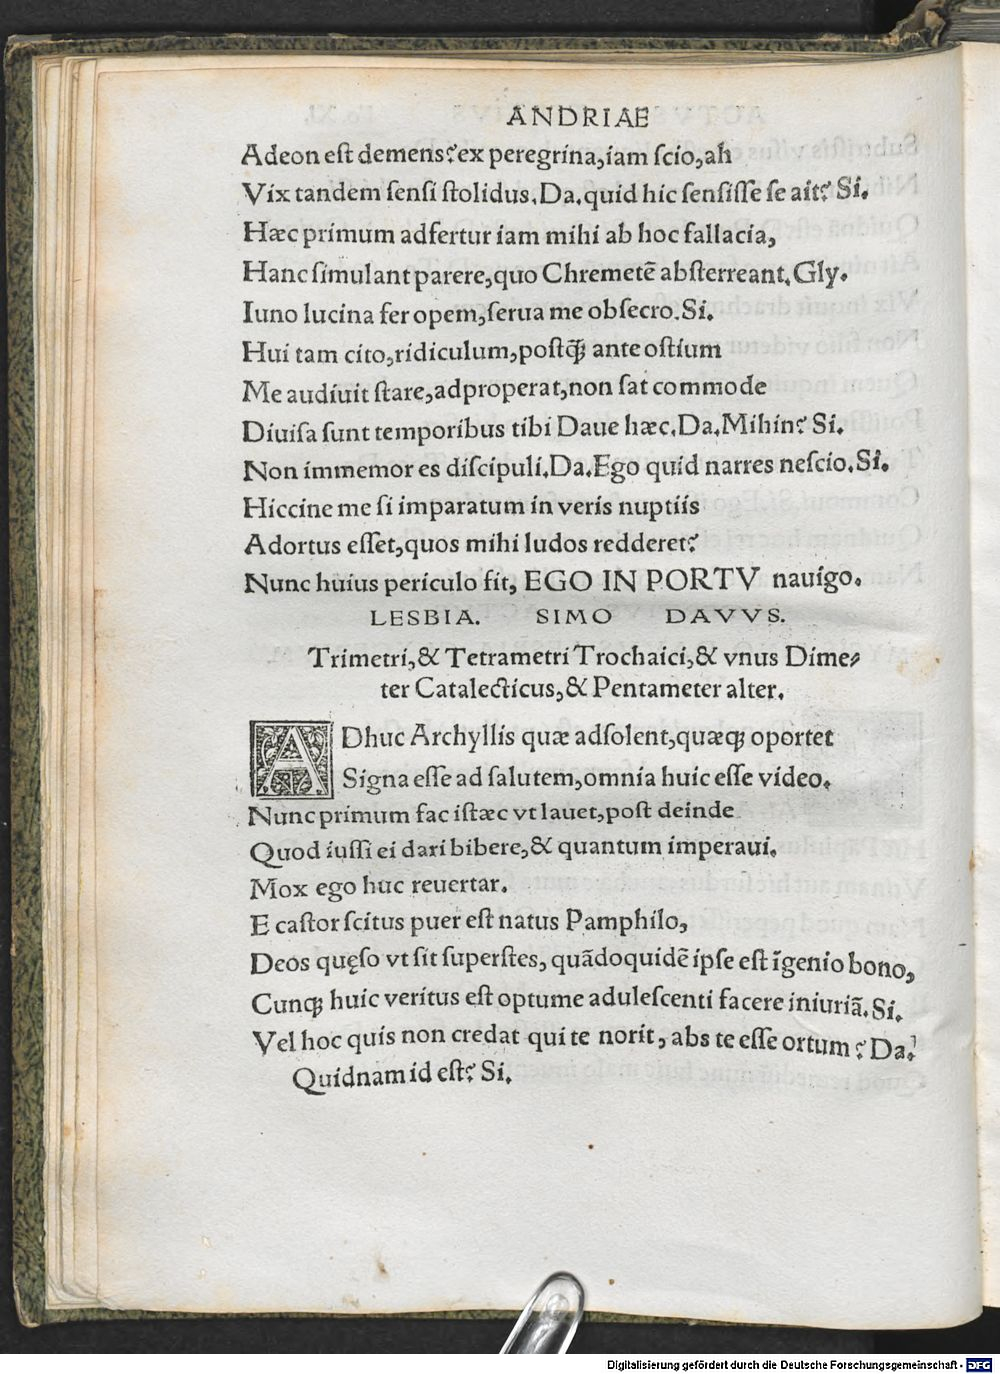 ANDRIAE
Adeon est demens? ex peregrina, iam scio, ah
Vix tandem sensi stolidus. Da. quid hic sensisse se ait? Si.
Hæc primum adfertur iam mihi ab hoc fallacia,
Hanc simulant parere, quo Chremetē absterreant. Gly.
Iuno lucina fer opem, serua me obsecro. Si.
Hui tam cito, ridiculum, postꝗ̃ ante ostium
Me audiuit stare, adproperat, non sat commode
Diuisa sunt temporibus tibi Daue hæc. Da. Mihin? Si.
Non immemor es discipuli. Da. Ego quid narres nescio. Si.
Hiccine me si imparatum in veris nuptiis
Adortus esset, quos mihi ludos redderet?
Nunc huius periculo fit, EGO IN PORTV nauigo.
LESBIA. SIMO DAVVS.
Trimetri, & Tetrametri Trochaici, & vnus Dime⸗
ter Catalecticus, & Pentameter alter.
ADhuc Archyllis quæ adsolent, quæq; oportet
Signa esse ad salutem, omnia huic esse video.
Nunc primum fac istæc vt lauet, post deinde
Quod iussi ei dari bibere, & quantum imperaui.
Mox ego huc reuertar.
E castor scitus puer est natus Pamphilo,
Deos quęso vt sit superstes, quādoquidē ipse est īgenio bono,
Cunq; huic veritus est optume adulescenti facere iniuriā. Si.
Vel hoc quis non credat qui te norit, abs te esse ortum? Da.
Quidnam id est? Si.
Digitalisierung gefördert durch die Deutsche Forschungsgemeinschaft - DFG